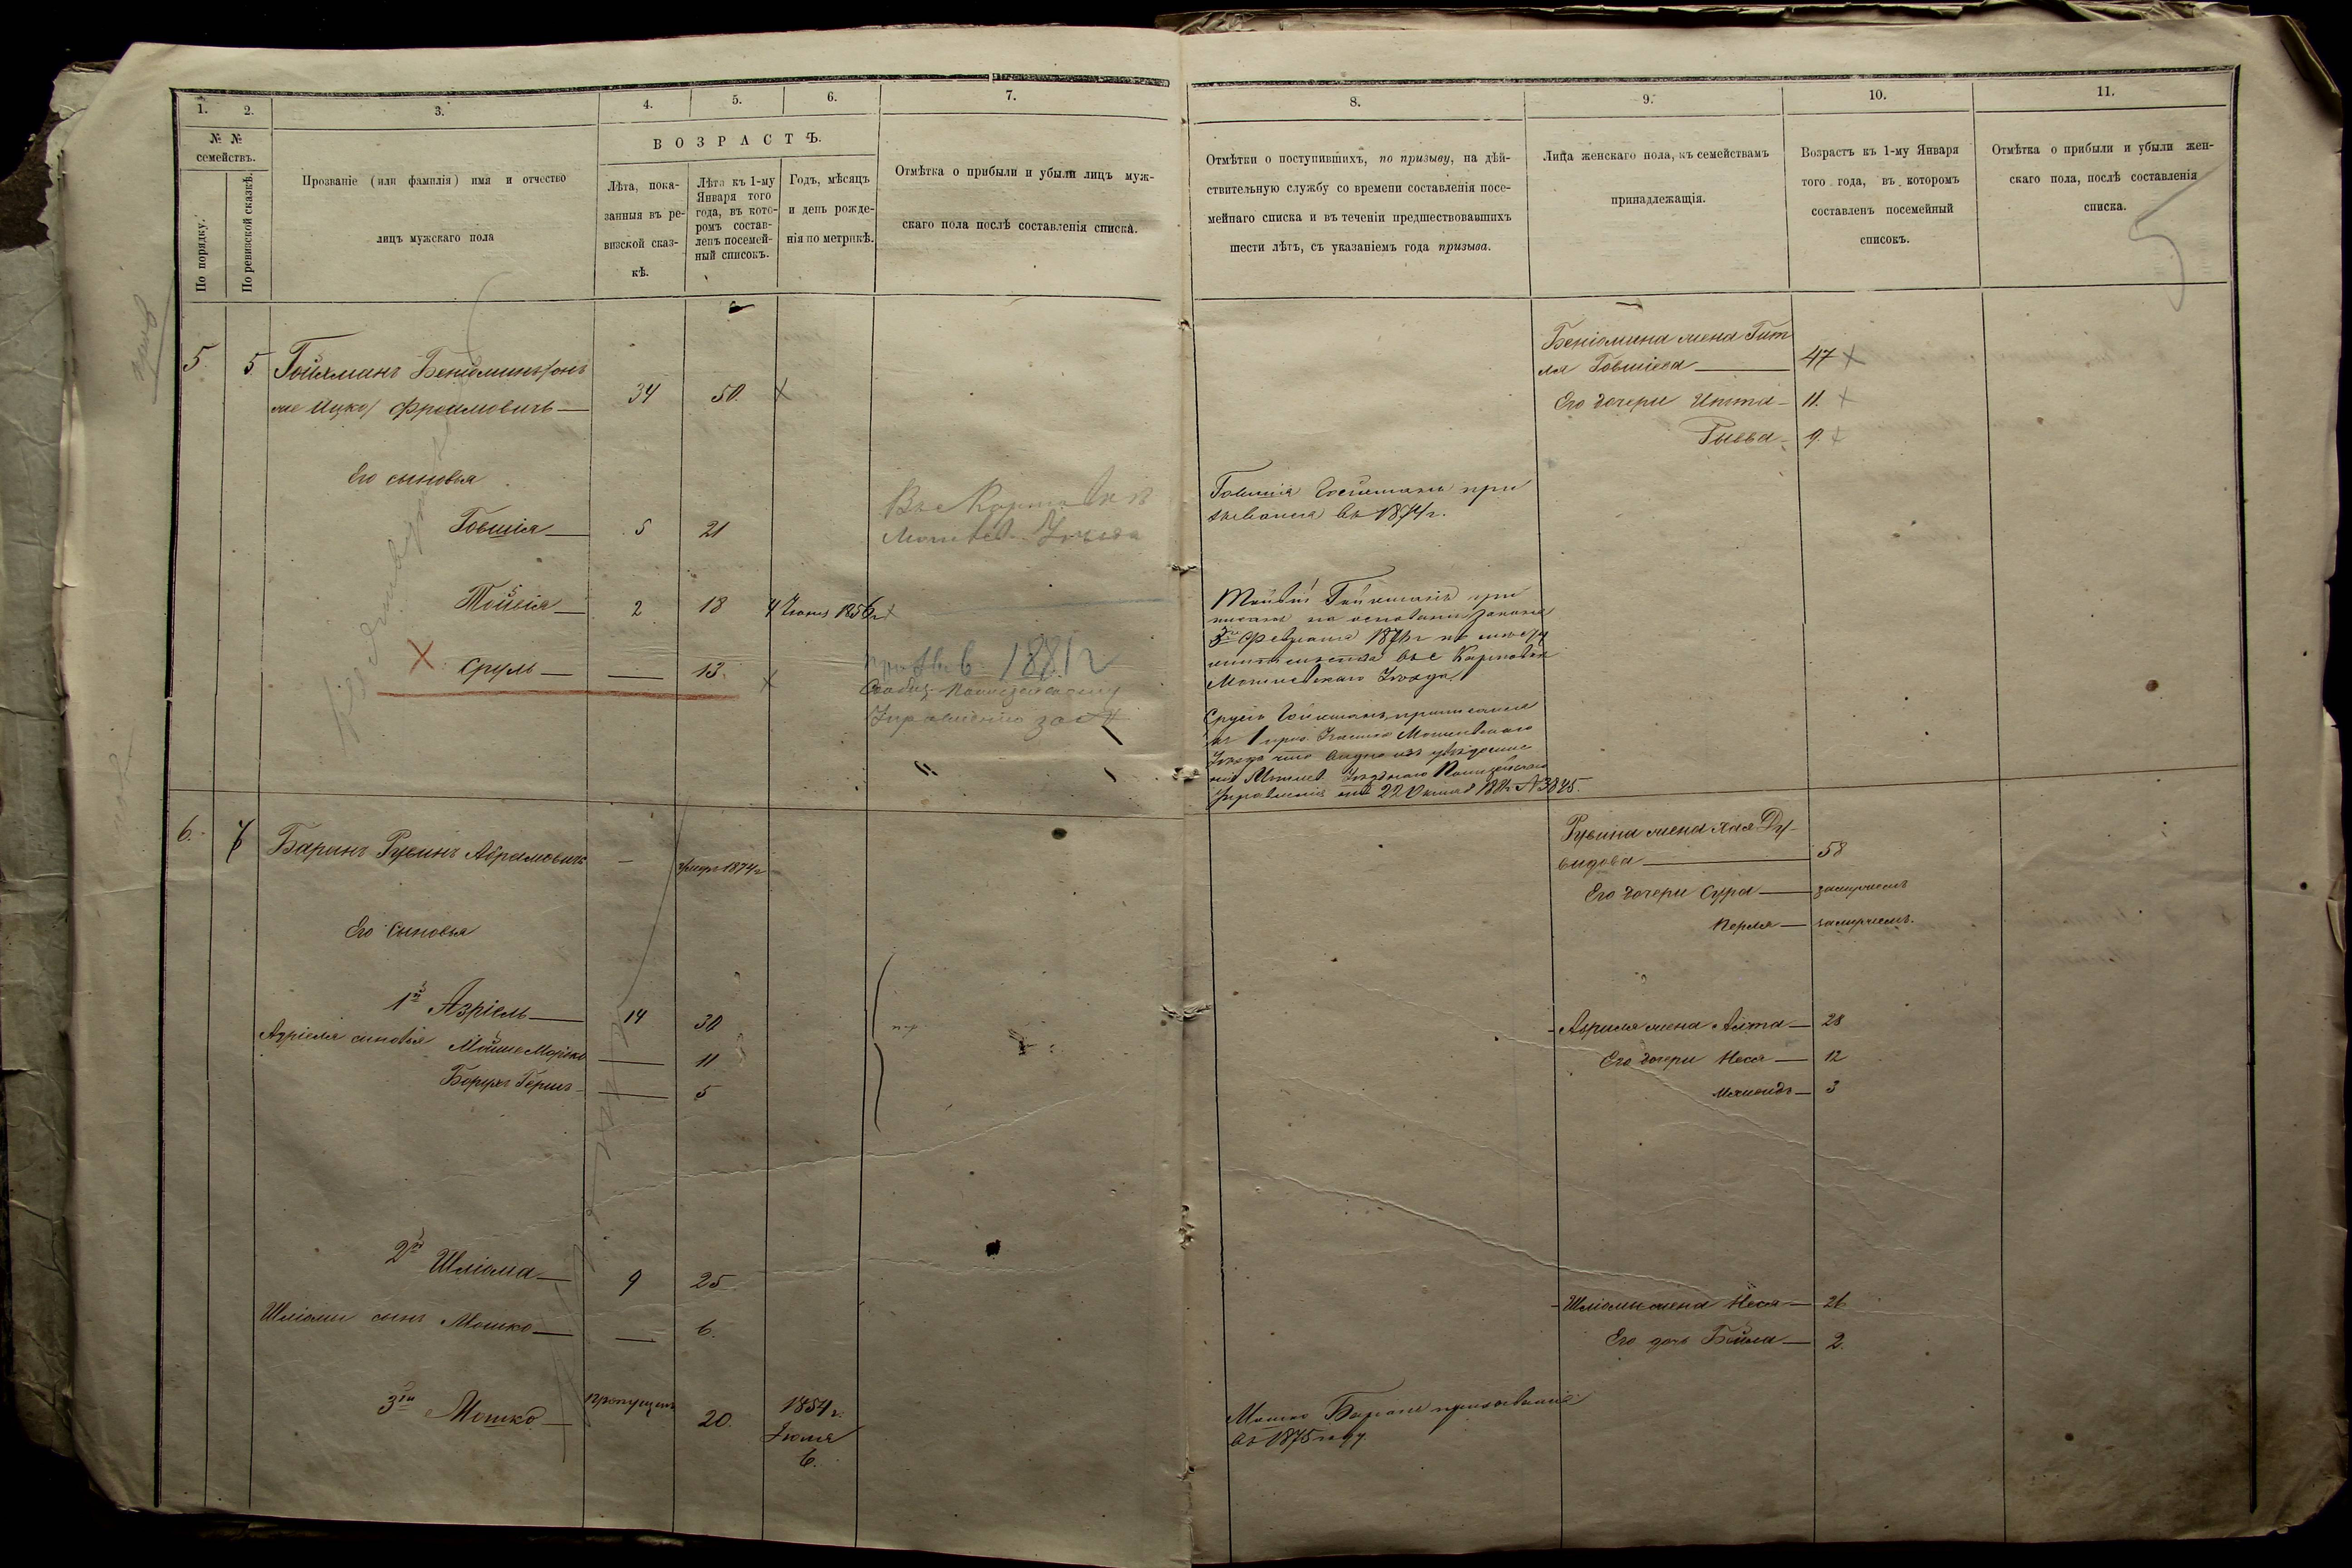 1.
2.
3.
4.
5.
6.
7.
№ №
семействъ.
По порядку.
По ревизской сказкѣ.
Прозваніе (или фамилія) имя и отчество
лицъ мужскаго пола
ВОЗРАСТЪ.
Лѣта, пока-
занныя въ ре-
визской сказ-
кѣ.
Лѣта къ 1-му
Января того
года, въ кото-
ромъ состав-
ленъ посемей-
ный списокъ.
Годъ, мѣсяцъ
и день рожде-
нія по метрикѣ.
Отмѣтка о прибыли и убыли лицъ муж-
скаго пола послѣ составленія списка.
5
5
Гойхманъ Беніоминъ/онъ
же Ицко/ Фроимовичъ
34
50.
Его сыновья
Говшія
5
21
Тойвія
2
18
4 Іюня 1856 г.
Сруль
13.
1881 г
Управленію за №
6.
7
Баринъ Рувинъ Абрамовичъ
умеръ 1874 г
Его сыновья
1й Азріель
14
30
Азріеля сыновья Мойше Мордко
11
Борухъ Гершъ
5
2й Шліома
9
25
Шліомы сынъ Мошко
6.
3й Мошко
пропущенъ
20.
1854 г.
Іюля
6.
8.
9.
10.
11.
Отмѣтки о поступившихъ, по призыву, на дѣй-
ствительную службу со времени составленія посе-
мейнаго списка и въ теченіи предшествовавшихъ
шести лѣтъ, съ указаніемъ года призыва.
Лица женскаго пола, къ семействамъ
принадлежащія.
Возрастъ къ 1-му Января
того года, въ которомъ
составленъ посемейный
списокъ.
Отмѣтка о прибыли и убыли жен-
скаго пола, послѣ составленія
списка.
5
Беніомина жена Гит
ля Говшіева
47
Его дочери Итта
11.
9.
Говшія Гойхманъ при
зывался въ 1874 г.
Тойвія Гойхманъ при
писанъ на основаніи закона
3го Февраля 187 г по мѣсту
жительства въ с Карповкѣ
Могилевскаго Уѣзда.
Сруль Гойхманъ приписанъ
къ 1 приз. Участку Могилевскаго
Уѣзда что видно изъ увѣдомле
нія Могилев. Уѣзднаго Полицейскаго
Управленія отъ 22 188 г №3845.
Рувина жена Хая Ду-
видова
58
Его дочери Сура
замужемъ
Перля
замужемъ.
Азріеля жена Алта
28
Его дочери Неся
12
3
Шліомы жена Неся
26
Его дочь Бейла
2.
Мошко Баринъ призывался
въ 1875 году.